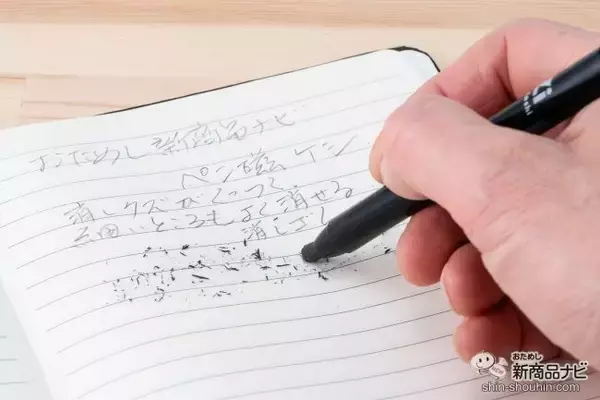 おためし新商品ナビ
ペン磁ケシ
消しクズがくっつく
細いところもよく消せる
消しゴム
おためし
新商品ナビ
shin-shouhin.com